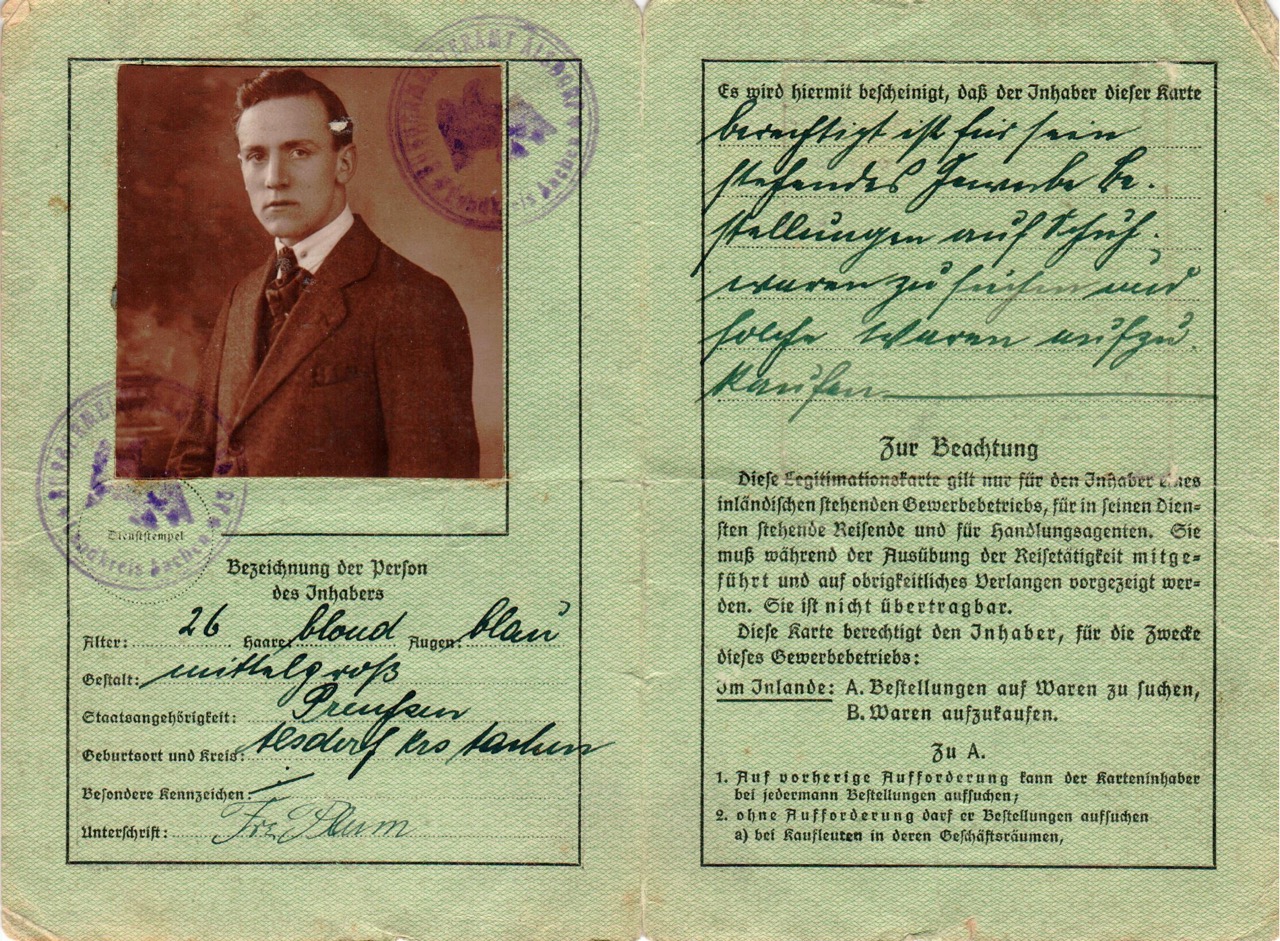 BÜRGERMEISTERAMT ALSDORF
Landkreis Aachen
Dienststempel
Bezeichnung der Person
des Inhabers
Alter: 26 Haare: blond Augen: blau
Gestalt: mittelgroß
Staatsangehörigkeit: Preußen
Geburtsort und Kreis: Alsdorf Krs Aachen
Besondere Kennzeichen: –
Unterschrift: Plum
Es wird hiermit bescheinigt, daß der Inhaber dieser Karte
berechtigt ist für sein
stehendes Gewerbe Be-
stellungen auf Schuh-
waren zu suchen und
solche Waren aufzu-
kaufen
Zur Beachtung
Diese Legitimationskarte gilt nur für den Inhaber eines
inländischen stehenden Gewerbebetriebs, für in seinen Dien-
sten stehende Reisende und für Handlungsagenten. Sie
muß während der Ausübung der Reisetätigkeit mitge-
führt und auf obrigkeitliches Verlangen vorgezeigt wer-
den. Sie ist nicht übertragbar.
Diese Karte berechtigt den Inhaber, für die Zwecke
dieses Gewerbebetriebs:
Im Inlande: A. Bestellungen auf Waren zu suchen,
B. Waren aufzukaufen.
Zu A.
1. Auf vorherige Aufforderung kann der Karteninhaber
bei jedermann Bestellungen aufsuchen;
2. ohne Aufforderung darf er Bestellungen aufsuchen
a) bei Kaufleuten in deren Geschäftsräumen,